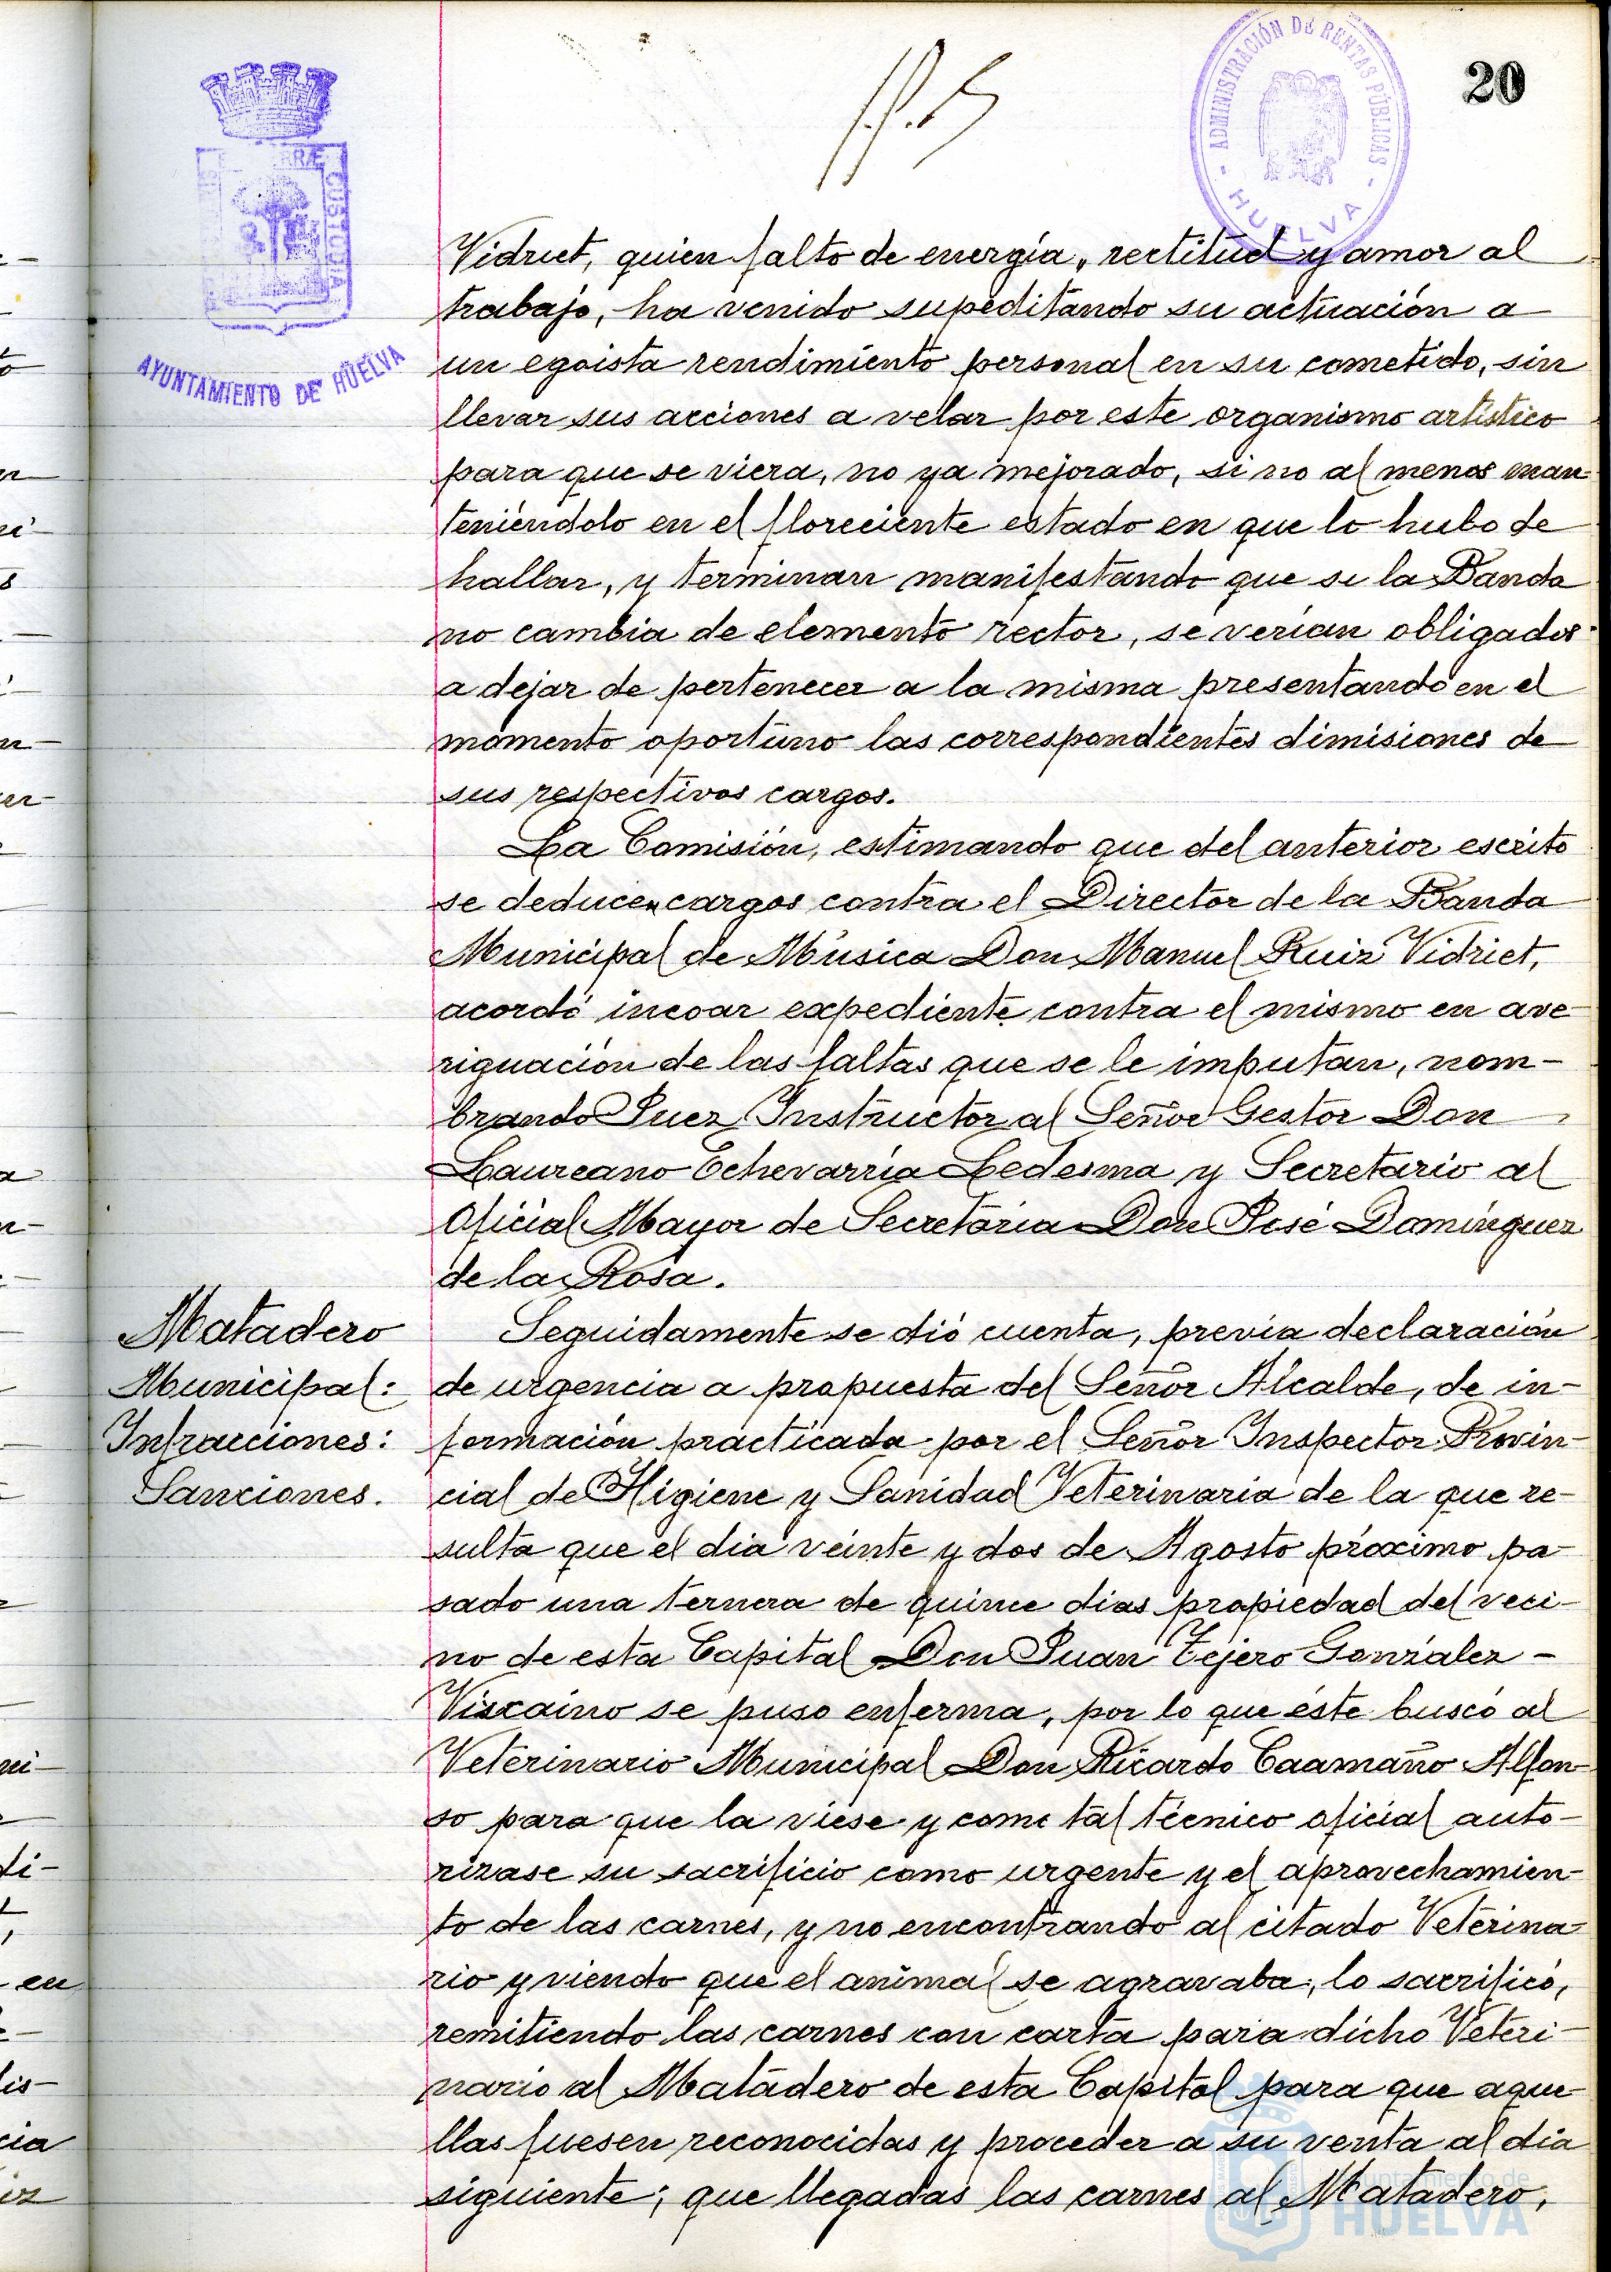 20
ADMINISTRACIÓN DE RENTAS PÚBLICAS
- HUELVA -
CUSTODIA
AYUNTAMIENTO DE HUELVA
Vidriet, quien falto de energía, rectitud y amor al
trabajo, ha venido supeditando su actuación a
un egoista rendimiento personal en su cometido, sin
llevar sus acciones a velar por este organismo artístico
para que se viera, no ya mejorado, si no al menos man-
teniéndolo en el floreciente estado en que lo hubo de
hallar, y terminan manifestando que si la Banda
no cambia de elemento rector, se verían obligados
a dejar de pertenecer a la misma presentando en el
momento oportuno las correspondientes dimisiones de
sus respectivos cargos.
La Comisión, estimando que del anterior escrito
se deducen cargos contra el Director de la Banda
Municipal de Música Don Manuel Ruiz Vidriet,
acordó incoar expediente contra el mismo en ave-
riguación de las faltas que se le imputan, nom-
brando Juez Instructor al Señor Gestor Don
Laureano Echevarría Ledesma y Secretario al
Oficial Mayor de Secretaría Don José Domínguez
de la Rosa.
Matadero
Municipal:
Infracciones:
Sanciones.
Seguidamente se dió cuenta, previa declaración
de urgencia a propuesta del Señor Alcalde, de in-
formación practicada por el Señor Inspector Provin-
cial de Higiene y Sanidad Veterinaria de la que re-
sulta que el dia veinte y dos de Agosto próximo pa-
sado una ternera de quince dias propiedad del veci-
no de esta Capital Don Juan Tejero González -
Vizcaino se puso enferma, por lo que éste buscó al
Veterinario Municipal Don Ricardo Caamaño Alfon-
so para que la viese y como tal técnico oficial auto-
rizase su sacrificio como urgente y el aprovechamien-
to de las carnes, y no encontrando al citado Veterina-
rio y viendo que el animal se agravaba, lo sacrificó,
remitiendo las carnes con carta para dicho Veteri-
nario al Matadero de esta Capital para que aque-
llas fuesen reconocidas y proceder a su venta al dia
siguiente; que llegadas las carnes al Matadero,
Ayuntamiento de
HUELVA